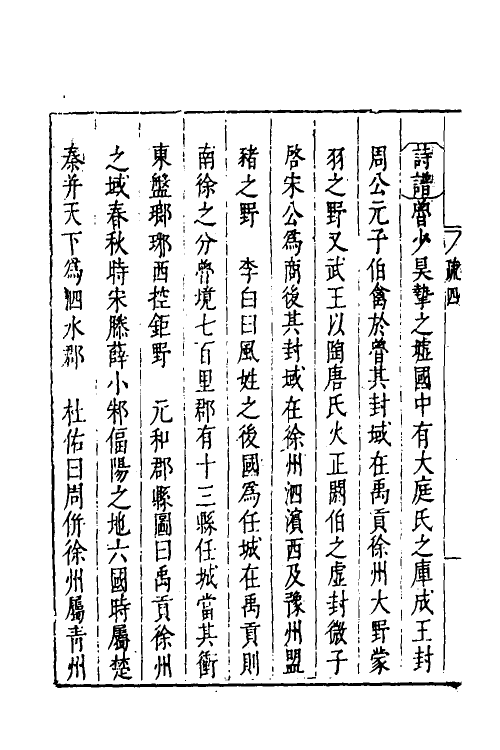 疏四
詩譜魯少昊摯之墟國中有大庭氏之庫成王封
周公元子伯禽於魯其封域在禹貢徐州大野蒙
羽之野又武王以陶唐氏火正閼伯之虛封微子
啓宋公為商後其封域在徐州泗濱西及豫州盟
豬之野　李白曰風姓之後國為任城在禹貢則
南徐之分魯境七百里郡有十三縣任城當其衝
東盤瑯琊西控鉅野　元和郡縣圖曰禹貢徐州
之域春秋時宋滕薛小邾偪陽之地六國時屬楚
秦并天下為泗水郡　杜佑曰周併徐州屬青州